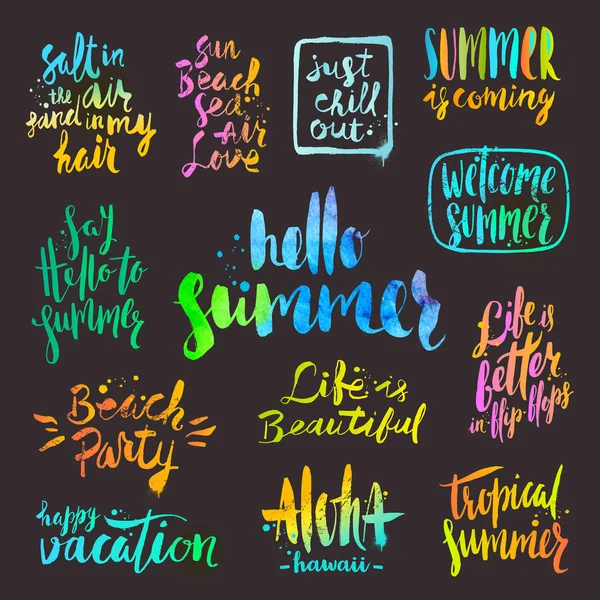 Salt in
the air
sand in my
hair
Sun
Beach
Sea
Air
Love
just
chill
out
SUMMER
is coming
Welcome
Summer
Say
Hello to
Summer
hello
summer
Life is
better
in flip flops
Beach
Party
Life is
Beautiful
happy
vacation
Aloha
- hawaii -
Tropical
summer